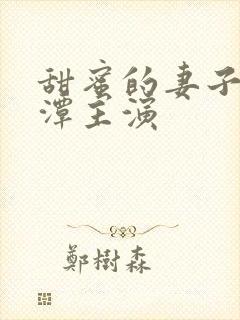 甜蜜的妻子
潭主演
鄭樹森